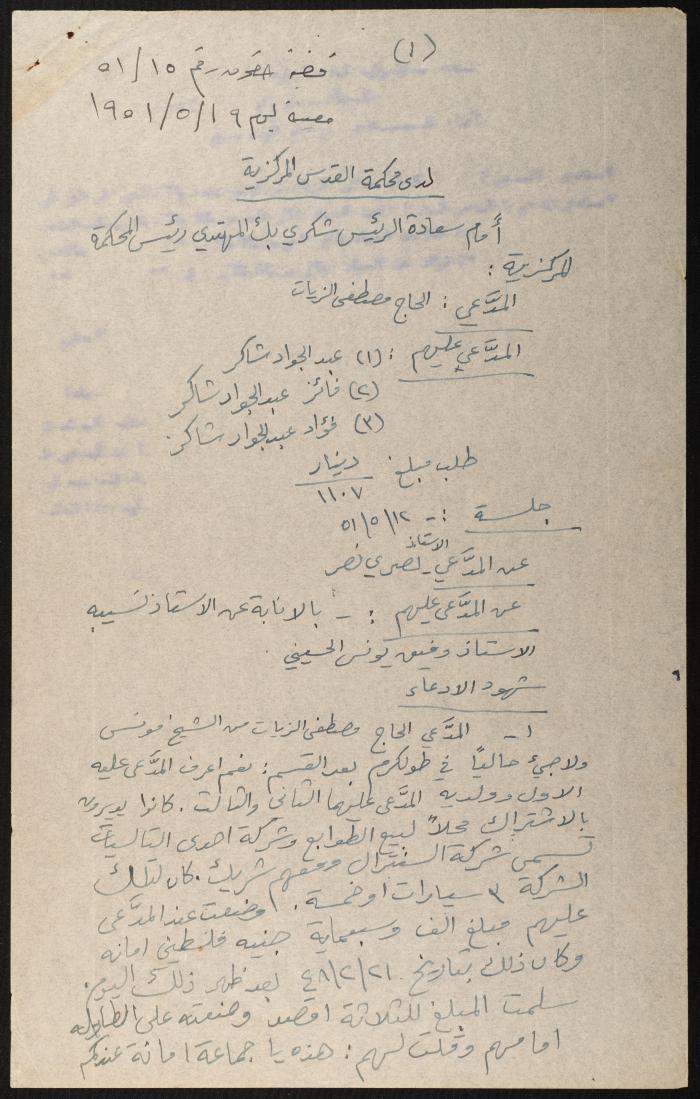 (١)
قضية حقوق رقم ٥١/١٥
معينة ليوم ١٩٥١/٥/١٩
لدى محكمة القدس المركزية
أمام سعادة الرئيس شكري بك المهتدي رئيس المحكمة
المركزية :
المدَّعي : الحاج مصطفى الزيات
المدَّعى عليهم : (١) عبد الجواد شاكر
(٢) فائز عبد الجواد شاكر
(٣) فؤاد عبد الجواد شاكر
طلب مبلغ دينار
١١٠٧
جلسة :- ٥١/٥/١٢
عن المدَّعي - الاستاذ نصري نصر
عن المدَّعى عليهم :- بالانابة عن الاستاذ نسيبه
الاستاذ وفيق يونس الحسيني .
شهود الادعاء
١- المدَّعي الحاج مصطفى الزيات من الشيخ مونس
ولاجئ حالياً في طولكرم بعد القسم : نعم اعرف المدَّعى عليه
الاول وولديه المدَّعى عليهما الثاني والثالث . كانوا يديرون
بالاشتراك محلاً لبيع الطوابع وشركة احدى التاكسيات
تسمى شركة السنترال ومعهم شريك . كان لتلك
الشركة ٣ سيارات او خمسة . وضعت عند المدَّعى
عليهم مبلغ الف وسبعماية جنيه فلسطيني امانه
وكان ذلك بتاريخ ٤٨/٢/٢١ بعد ظهر ذلك اليوم .
سلمت المبلغ للثلاثة اقصد وضعته على الطاوله
امامهم وقلت لهم : هذه يا جماعة امانة عندكم